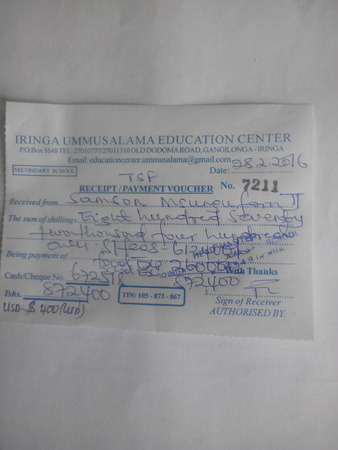 IRINGA UMMUSALAMA EDUCATION CENTER
P.O.Box 1648 TEL: 27010777/27011310 OLD DODOMA ROAD, GANGILONGA - IRINGA
Email: educationcenter.ummusalama@gmail.com
SECONDARY SCHOOL Date: 28.2.2016
TSF
RECEIPT / PAYMENT VOUCHER No. 7211
Received from Samson form II
The sum of shillings Eight hundred Seventy
two thousand four hundred
only
Being payment of
With Thanks
Cash/Cheque No. 872400
Tshs. 872400 TIN: 105 - 873 - 867
Sign of Receiver
USD $ 400 AUTHORISED BY.